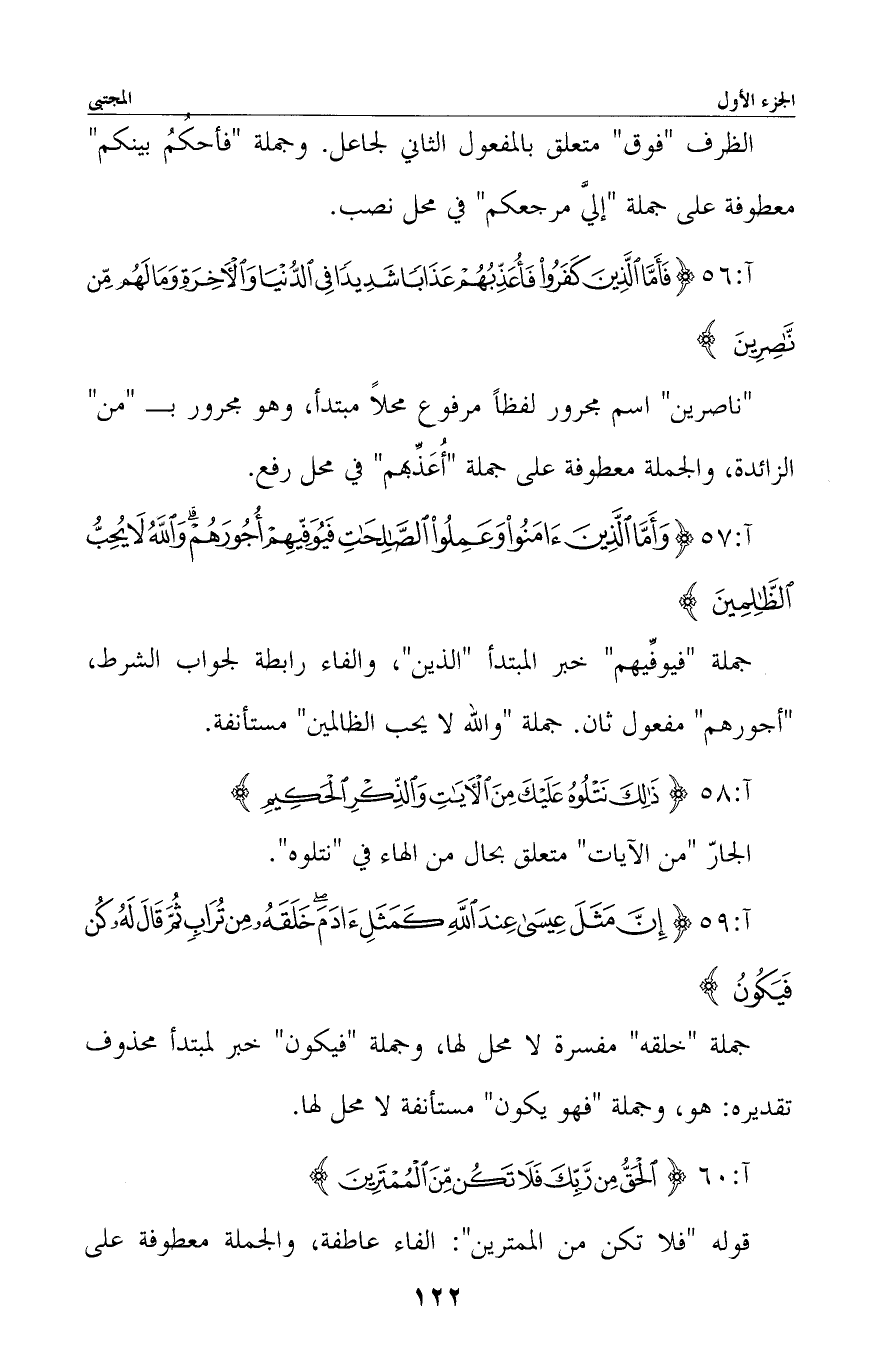 الجزء الأول المجتبى
الظرف "فوق" متعلق بالمفعول الثاني لجاعل. وجملة "فأحكُمُ بينكم"
معطوفة على جملة "إليَّ مرجعكم" في محل نصب.
آ:٥٦ ﴿ فَأَمَّا ٱلَّذِينَ كَفَرُوا۟ فَأُعَذِّبُهُمْ عَذَابًا شَدِيدًا فِى ٱلدُّنْيَا وَٱلْـَٔاخِرَةِ وَمَا لَهُم مِّن
نَّـٰصِرِينَ ﴾
"ناصرين" اسم مجرور لفظاً مرفوع محلاً مبتدأ، وهو مجرور بـــ "من"
الزائدة، والجملة معطوفة على جملة "أُعَذِّبُهم" في محل رفع.
آ:٥٧ ﴿ وَأَمَّا ٱلَّذِينَ ءَامَنُوا۟ وَعَمِلُوا۟ ٱلصَّـٰلِحَـٰتِ فَيُوَفِّيهِمْ أُجُورَهُمْ ۗ وَٱللَّهُ لَا يُحِبُّ
ٱلظَّـٰلِمِينَ ﴾
جملة "فيوفِّيهم" خبر المبتدأ "الذين"، والفاء رابطة لجواب الشرط،
"أجورهم" مفعول ثان. جملة "والله لا يحب الظالمين" مستأنفة.
آ:٥٨ ﴿ ذَٰلِكَ نَتْلُوهُ عَلَيْكَ مِنَ ٱلْـَٔايَـٰتِ وَٱلذِّكْرِ ٱلْحَكِيمِ ﴾
الجارّ "من الآيات" متعلق بحال من الهاء في "نتلوه".
آ:٥٩ ﴿ إِنَّ مَثَلَ عِيسَىٰ عِندَ ٱللَّهِ كَمَثَلِ ءَادَمَ ۖ خَلَقَهُۥ مِن تُرَابٍ ثُمَّ قَالَ لَهُۥ كُن
فَيَكُونُ ﴾
جملة "خلقه" مفسرة لا محل لها، وجملة "فيكون" خبر لمبتدأ محذوف
تقديره: هو، وجملة "فهو يكون" مستأنفة لا محل لها.
آ:٦٠ ﴿ ٱلْحَقُّ مِن رَّبِّكَ فَلَا تَكُن مِّنَ ٱلْمُمْتَرِينَ ﴾
قوله "فلا تكن من الممترين": الفاء عاطفة، والجملة معطوفة على
١٢٢